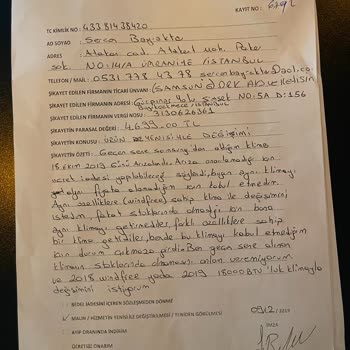 KAYIT NO: 679L
TC KİMLİK NO: 43381438420
AD SOYAD : Sercan
ADRES : Atakent mah.
sok. NO:14/A ÜMRANİYE İSTANBUL
TELEFON / MAIL : 0531 778 43 78
ŞİKAYET EDİLEN FİRMANIN TİCARİ UNVANI : (SAMSUNG)
ŞİKAYET EDİLEN FİRMANIN ADRESİ : NO:5A D:156
İSTANBUL
ŞİKAYET EDİLEN FİRMANIN VERGİ NOSU : 3130626361
ŞİKAYETİN PARASAL DEĞERİ : 4.699.00 TL
ŞİKAYETİN KONUSU : ÜRÜN YENİSİYLE DEĞİŞİMİ
ŞİKAYETİN ÖZETİ : Geçen sene samsung'dan aldığım klima
18 Ekim 2019 Günü Arızalandı. Arıza onarılamadığı için
ücret iadesi yapılabileceği söylendi, bugün aynı klimayı
aynı fiyata alamadığım için kabul etmedim.
Aynı özelliklere (windfree) sahip klima ile değişimini
istedim, fakat stoklarında olmadığı için bana
aynı klimayı getirmediler, farklı özelliklere sahip
bir klima getirdiler, bende bu klimayı kabul etmedim
için durum çıkmaza girdi. Ben geçen sene alınan
klimanın stoklarında olmaması onları veremiyorum
ve 2018 windfree yada 2019 18000 BTU 'luk klimayla
değişimini istiyorum
BEDEL İADESİNİ İÇEREN SÖZLEŞMEDEN DÖNME
MALIN / HİZMETİN YENİSİYLE DEĞİŞTİRİLMESİ / YENİDEN GÖRÜLMESİ
AYIP ORANINDA İNDİRİM
ÜCRETSİZ ONARIM
09.12./2019
İMZA